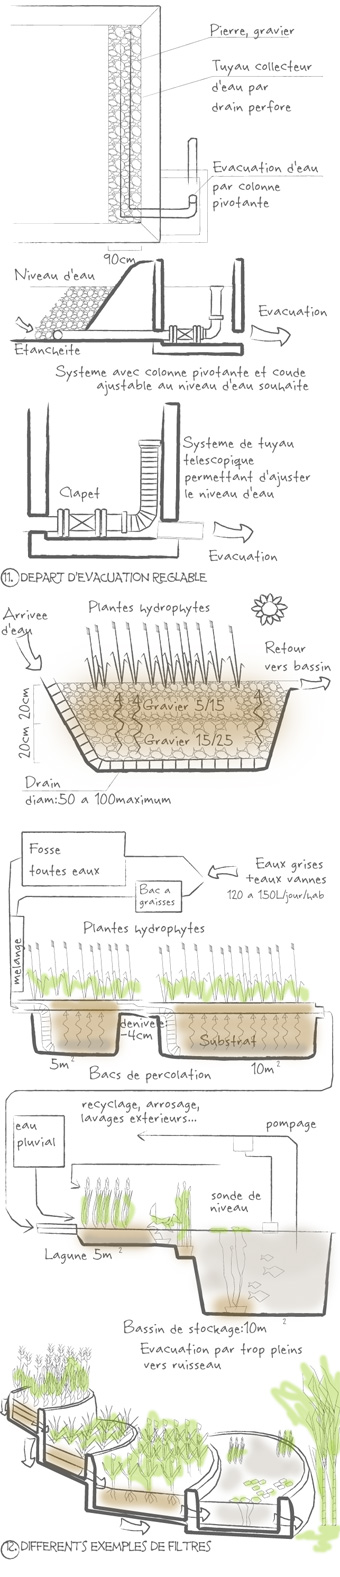 Pierre, gravier
Tuyau collecteur
d'eau par
drain perfore
Evacuation d'eau
par colonne
pivotante
90cm
Niveau d'eau
Evacuation
Etancheite
Systeme avec colonne pivotante et coude
ajustable au niveau d'eau souhaite
Systeme de tuyau
telescopique
permettant d'ajuster
le niveau d'eau
Clapet
Evacuation
11. DEPART D'EVACUATION REGLABLE
Plantes hydrophytes
Arrivee
d'eau
Retour
vers bassin
20cm
Gravier 5/15
20cm
Gravier 15/25
Drain
diam:50 a 100maximum
Fosse
toutes eaux
Eaux grises
+eaux vannes
120 a 150L/jour/hab
Bac a
graisses
melange
Plantes hydrophytes
denivele:
-4cm
Substrat
5m²
10m²
Bacs de percolation
recyclage, arrosage,
lavages exterieurs...
eau
pluvial
pompage
sonde de
niveau
Lagune 5m²
Bassin de stockage:10m²
Evacuation par trop pleins
vers ruisseau
12. DIFFERENTS EXEMPLES DE FILTRES